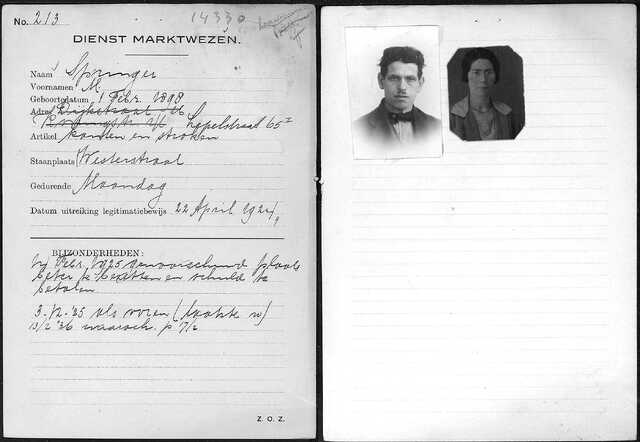 No. 213
14330
DIENST MARKTWEZEN.
Naam Springer
Voornamen M.
Geboortedatum 1 Febr. 1898
Adres Dijkstraat
Lepelstraat 65 I
Artikel kanten en stroken
Staanplaats Westerstraat
Gedurende Maandag
Datum uitreiking legitimatiebewijs 22 April 1924
BIJZONDERHEDEN:
Febr. 1925 plaats
beter te bezetten en schuld te
betalen
3-12-'25 als voren
10/2 '26 waarsch. p 7/2
Z. O. Z.